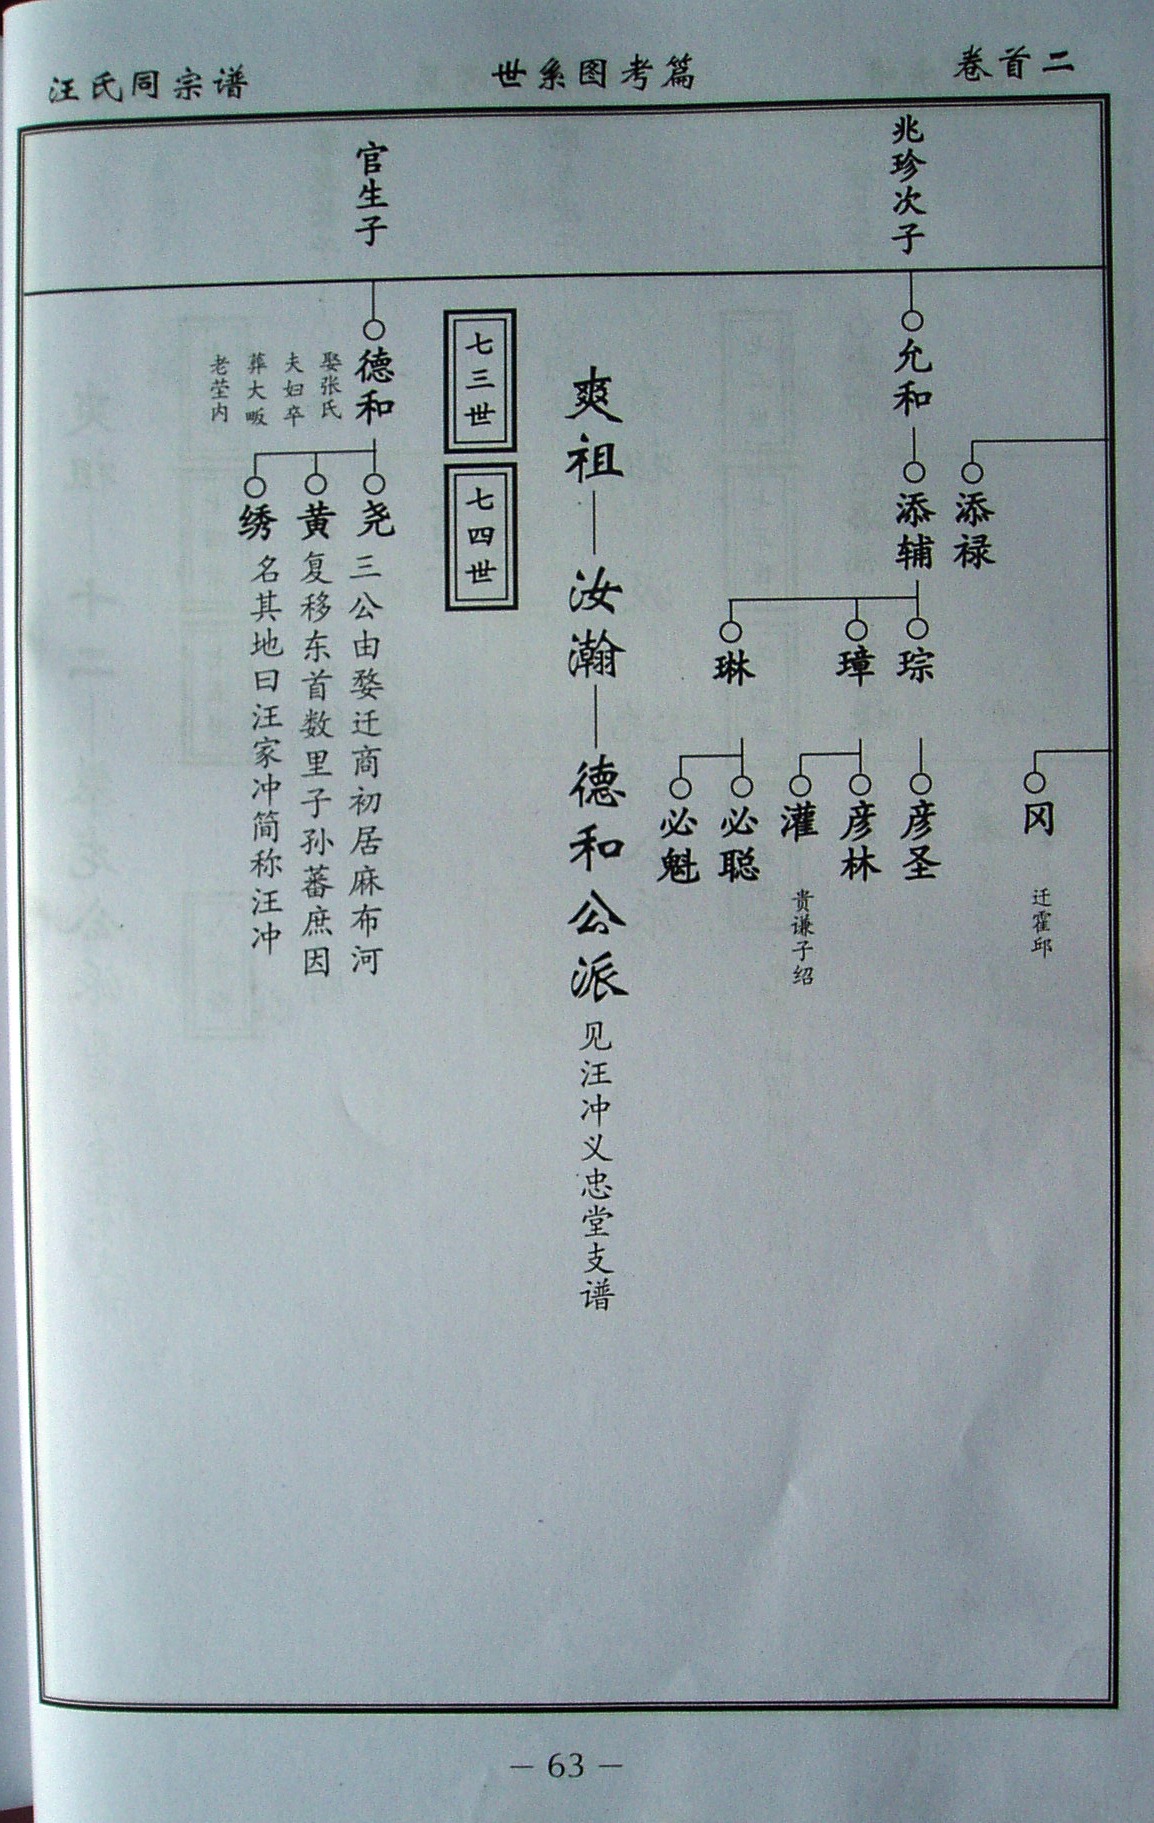 卷首二
世系图考篇
汪氏同宗谱
兆珍次子
允和
添禄
添辅
琮
璋
琳
冈
迁霍邱
彦圣
彦林
灌
贵谦子绍
必聪
必魁
爽祖—汝瀚—德和公派见汪冲义忠堂支谱
七三世
七四世
官生子
德和
娶张氏
夫妇卒
葬大畈
老茔内
尧
黄
绣
三公由婺迁商初居麻布河
复移东首数里子孙蕃庶因
名其地曰汪家冲简称汪冲
— 63 —